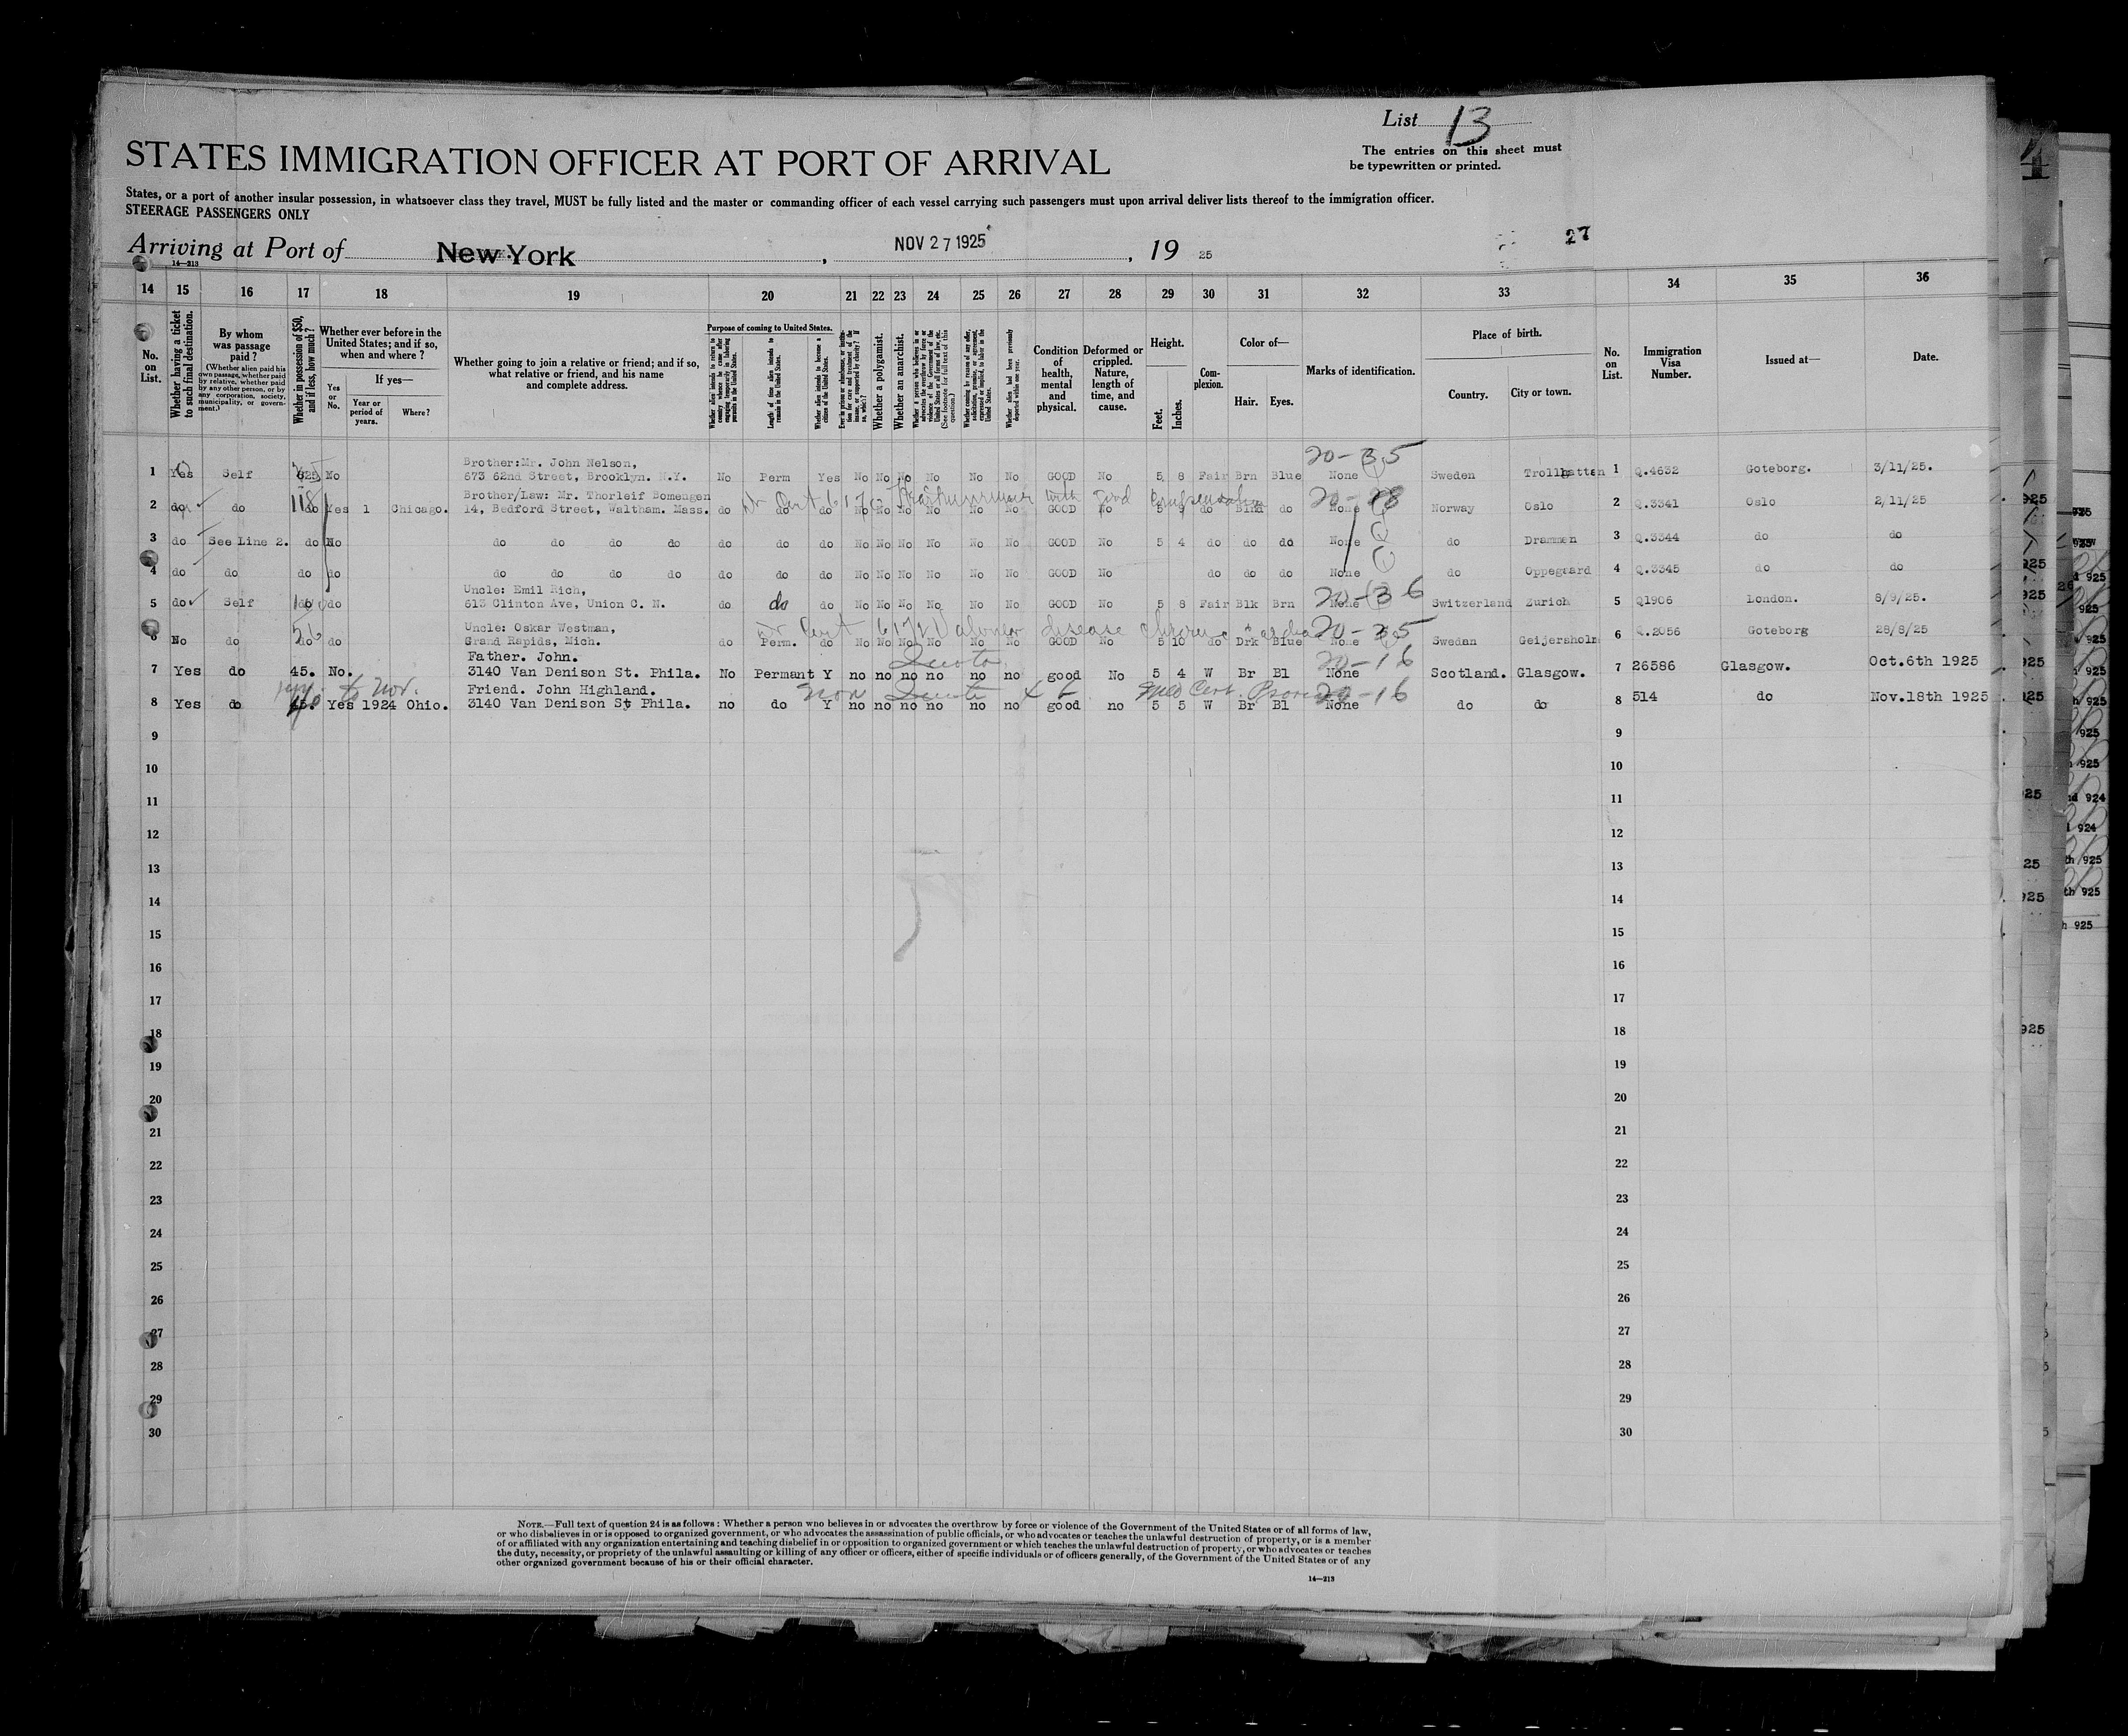 List 13
The entries on this sheet must
be typewritten or printed.
STATES IMMIGRATION OFFICER AT PORT OF ARRIVAL
States, or a port of another insular possession, in whatsoever class they travel, MUST be fully listed and the master or commanding officer of each vessel carrying such passengers must upon arrival deliver lists thereof to the immigration officer.
STEERAGE PASSENGERS ONLY
Arriving at Port of New York, NOV 27 1925, 19 25
27
14—213
14 15 16 17 18 19 20 21 22 23 24 25 26 27 28 29 30 31 32 33 34 35 36
No. on List.
Whether having a ticket to such final destination.
By whom was passage paid?
(Whether alien paid his own passage, whether paid by relative, whether paid by any other person, or by any corporation, society, municipality, or government.)
Whether in possession of $50, and if less, how much?
Whether ever before in the United States; and if so, when and where?
Yes or No.
If yes—
Year or period of years.
Where?
Whether going to join a relative or friend; and if so, what relative or friend, and his name and complete address.
Purpose of coming to United States.
Length of time alien intends to remain in the United States.
Whether alien intends to become a citizen of the United States.
Whether a polygamist.
Whether an anarchist.
Condition of health, mental and physical.
Deformed or crippled. Nature, length of time, and cause.
Height.
Feet.
Inches.
Complexion.
Color of—
Hair.
Eyes.
Marks of identification.
Place of birth.
Country.
City or town.
No. on List.
Immigration Visa Number.
Issued at—
Date.
Brother:Mr. John Nelson,
1 Yes Self 825 No 673 62nd Street, Brooklyn. N.Y. No Perm Yes No No No No No No GOOD No 5 8 Fair Brn Blue None 20-35 Sweden Trollhatten 1 Q.4632 Goteborg. 3/11/25.
Brother/Law: Mr. Thorleif Bomengen
2 do do 118 do Yes 1 Chicago. 14, Bedford Street, Waltham. Mass. do do do No No No No No No GOOD No 5 9 do Blnd do None 20-28 Norway Oslo 2 Q.3341 Oslo 2/11/25
3 do See Line 2. do No do do do do do do do No No No No No No GOOD No 5 4 do do do None do Drammen 3 Q.3344 do do
4 do do do do do do do do do do do No No No No No No GOOD No do do do None do Oppegaard 4 Q.3345 do do
Uncle: Emil Rich,
5 do Self do do 613 Clinton Ave, Union C. N. do do do No No No No No No GOOD No 5 8 Fair Blk Brn None 20-36 Switzerland Zurich 5 Q1906 London. 8/9/25.
Uncle: Oskar Westman,
6 No do do do Grand Rapids, Mich. do Perm. do No No No No No No GOOD No 5 10 do Drk Blue None 20-35 Swedan Geijersholm 6 Q.2056 Goteborg 28/8/25
Father. John. Quota
7 Yes do 45. No. 3140 Van Denison St. Phila. No Permant Y no no no no no no good No 5 4 W Br Bl None 20-16 Scotland. Glasgow. 7 26586 Glasgow. Oct.6th 1925
Friend. John Highland. non Quota
8 Yes do Yes 1924 Ohio. 3140 Van Denison St Phila. no do Y no no no no no no good no 5 5 W Br Bl None 20-16 do do 8 514 do Nov.18th 1925
9 9
10 10
11 11
12 12
13 13
14 14
15 15
16 16
17 17
18 18
19 19
20 20
21 21
22 22
23 23
24 24
25 25
26 26
27 27
28 28
29 29
30 30
NOTE.—Full text of question 24 is as follows: Whether a person who believes in or advocates the overthrow by force or violence of the Government of the United States or of all forms of law,
or who disbelieves in or is opposed to organized government, or who advocates the assassination of public officials, or who advocates or teaches the unlawful destruction of property, or is a member
of or affiliated with any organization entertaining and teaching disbelief in or opposition to organized government or which teaches the unlawful destruction of property, or who advocates or teaches
the duty, necessity, or propriety of the unlawful assaulting or killing of any officer or officers, either of specific individuals or of officers generally, of the Government of the United States or of any
other organized government because of his or their official character.
14—213